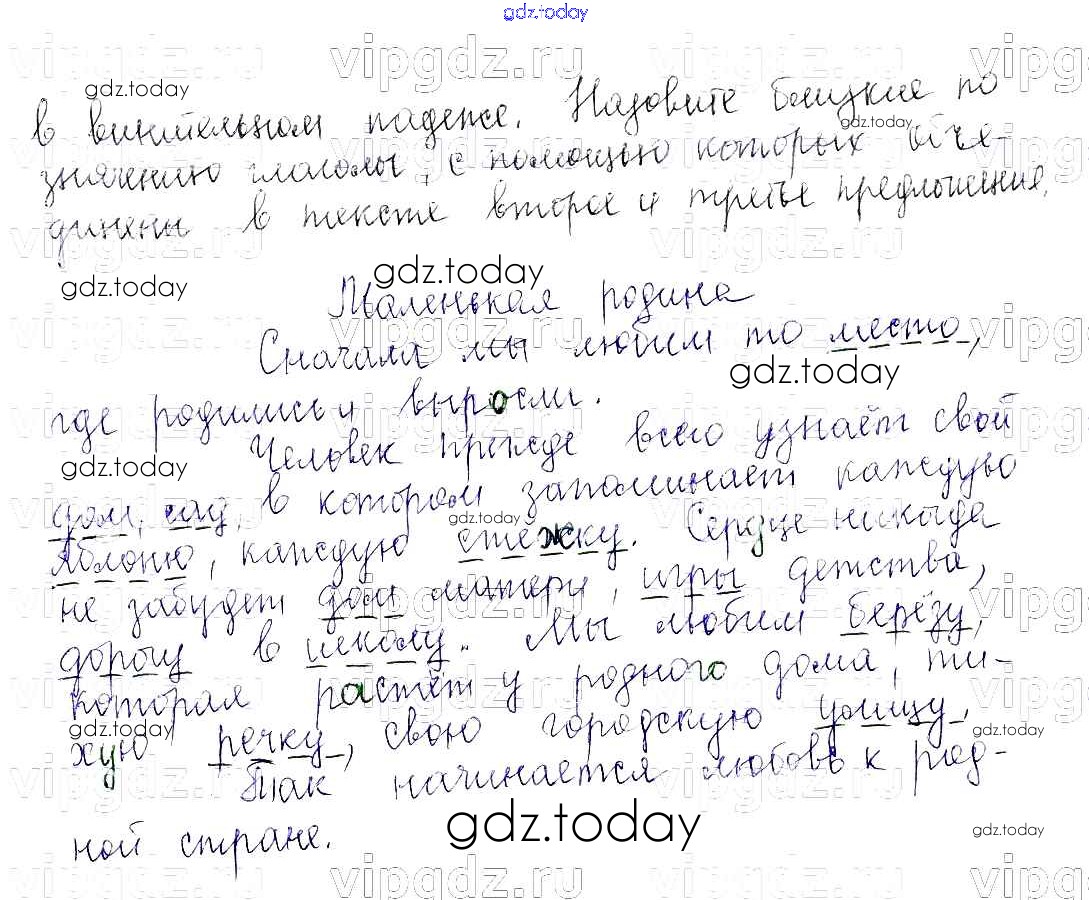 gdz.today
в винительном падеже. Назовите близкие по
значению глаголы, с помощью которых объе-
динены в тексте второе и третье предложения.
Маленькая родина
Сначала мы любим то место,
где родились и выросли.
Человек прежде всего узнаёт свой
дом, сад, в котором запоминает каждую
яблоню, каждую стежку. Сердце никогда
не забудет дом матери, игры детства,
дорогу в школу. Мы любим берёзу,
которая растёт у родного дома, ти-
хую речку, свою городскую улицу.
Так начинается любовь к род-
ной стране.